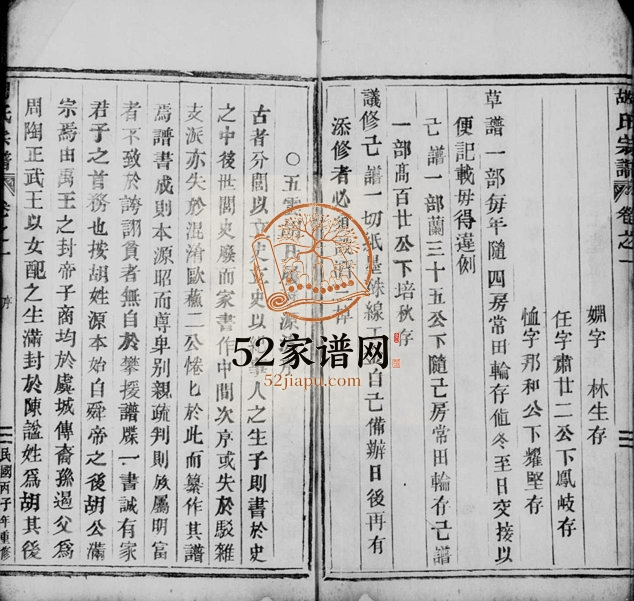 胡氏宗譜 卷之一
嫺字 林生存
任字肅廿二公下鳳岐存
恤字那和公下耀堅存
草譜一部每年隨四房常田輪存值冬至日交接以
便記載毋得違例
己譜一部蘭三十五公下隨己房常田輪存己譜
一部髙百廿公下培秋存
議修己譜一切紙墨硃線工
自己備辦日後再有
添修者必
五雲
古者分閭以立史立史以
人之生子則書於史
之中後世閭史廢而家書作中間次序或失於駁雜
支派亦失於混淆歐蘓二公惓匕於此而纂作其譜
焉譜書成則本源昭而尊卑别親疏判則族屬明富
者不致於誇詡貧者無自於攀援譜牒一書誠有家
君子之首務也按胡姓源本始自舜帝之後胡公滿
宗焉由禹王之封帝子商均於虞城傳裔孫遏父爲
周陶正武王以女配之生滿封於陳謚姓爲胡其後
氏宗譜 卷之一 序 民國丙子年重修
52家谱网
52jiapu.com